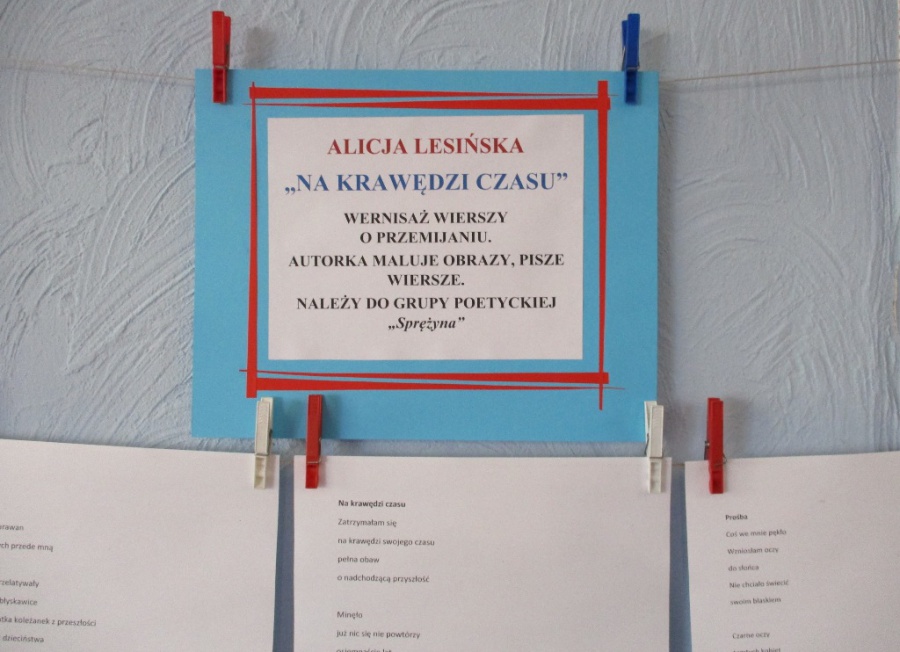 ALICJA LESIŃSKA
„NA KRAWĘDZI CZASU”
WERNISAŻ WIERSZY
O PRZEMIJANIU.
AUTORKA MALUJE OBRAZY, PISZE
WIERSZE.
NALEŻY DO GRUPY POETYCKIEJ
„Sprężyna”
ych przede mną
rzelatywały
błyskawice
tka koleżanek z przeszłości
dzieciństwa
Na krawędzi czasu
Zatrzymałam się
na krawędzi swojego czasu
pełna obaw
o nadchodzącą przyszłość
Minęło
już nic się nie powtórzy
Prośba
Coś we mnie pękło
Wzniosłam oczy
do słońca
Nie chciało świecić
swoim blaskiem
Czarne oczy